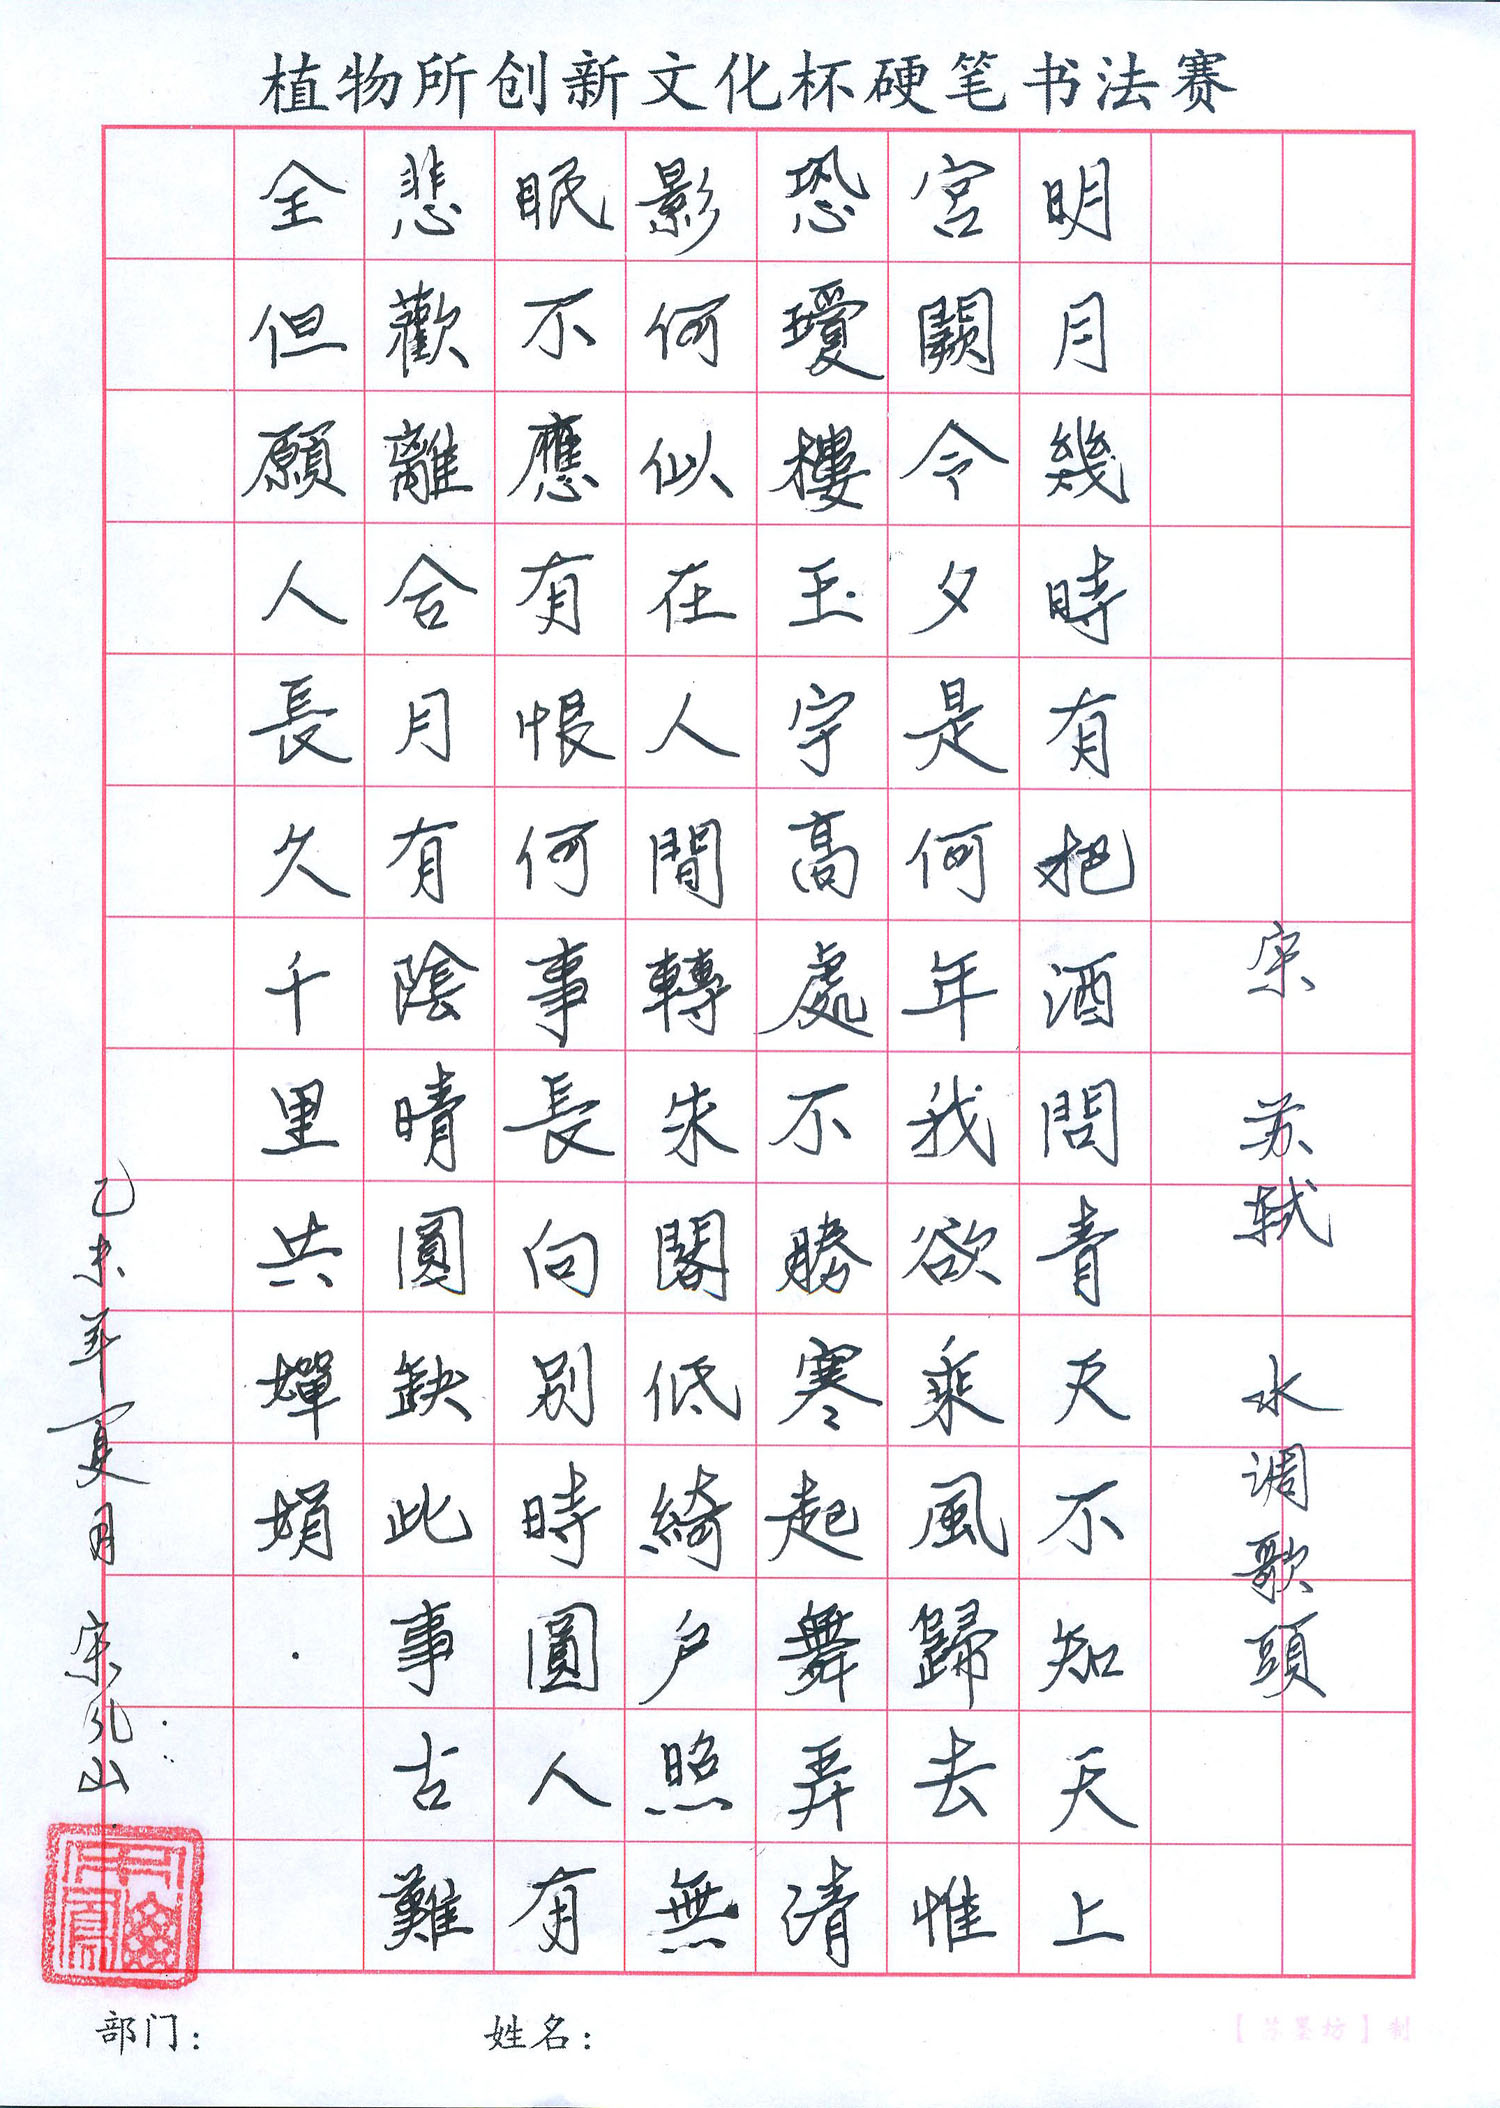 植物所创新文化杯硬笔书法赛
宋 苏轼 水调歌頭
明月幾時有把酒問青天不知天上
宮闕令夕是何年我欲乘風歸去惟
恐瓊樓玉宇高處不勝寒起舞弄清
影何似在人間轉朱閣低綺户照無
眠不應有恨何事長向别時圓人有
悲歡離合月有陰晴圓缺此事古難
全但願人長久千里共嬋娟.
乙未年夏月 宋
部门： 姓名：
【苏墨坊】制